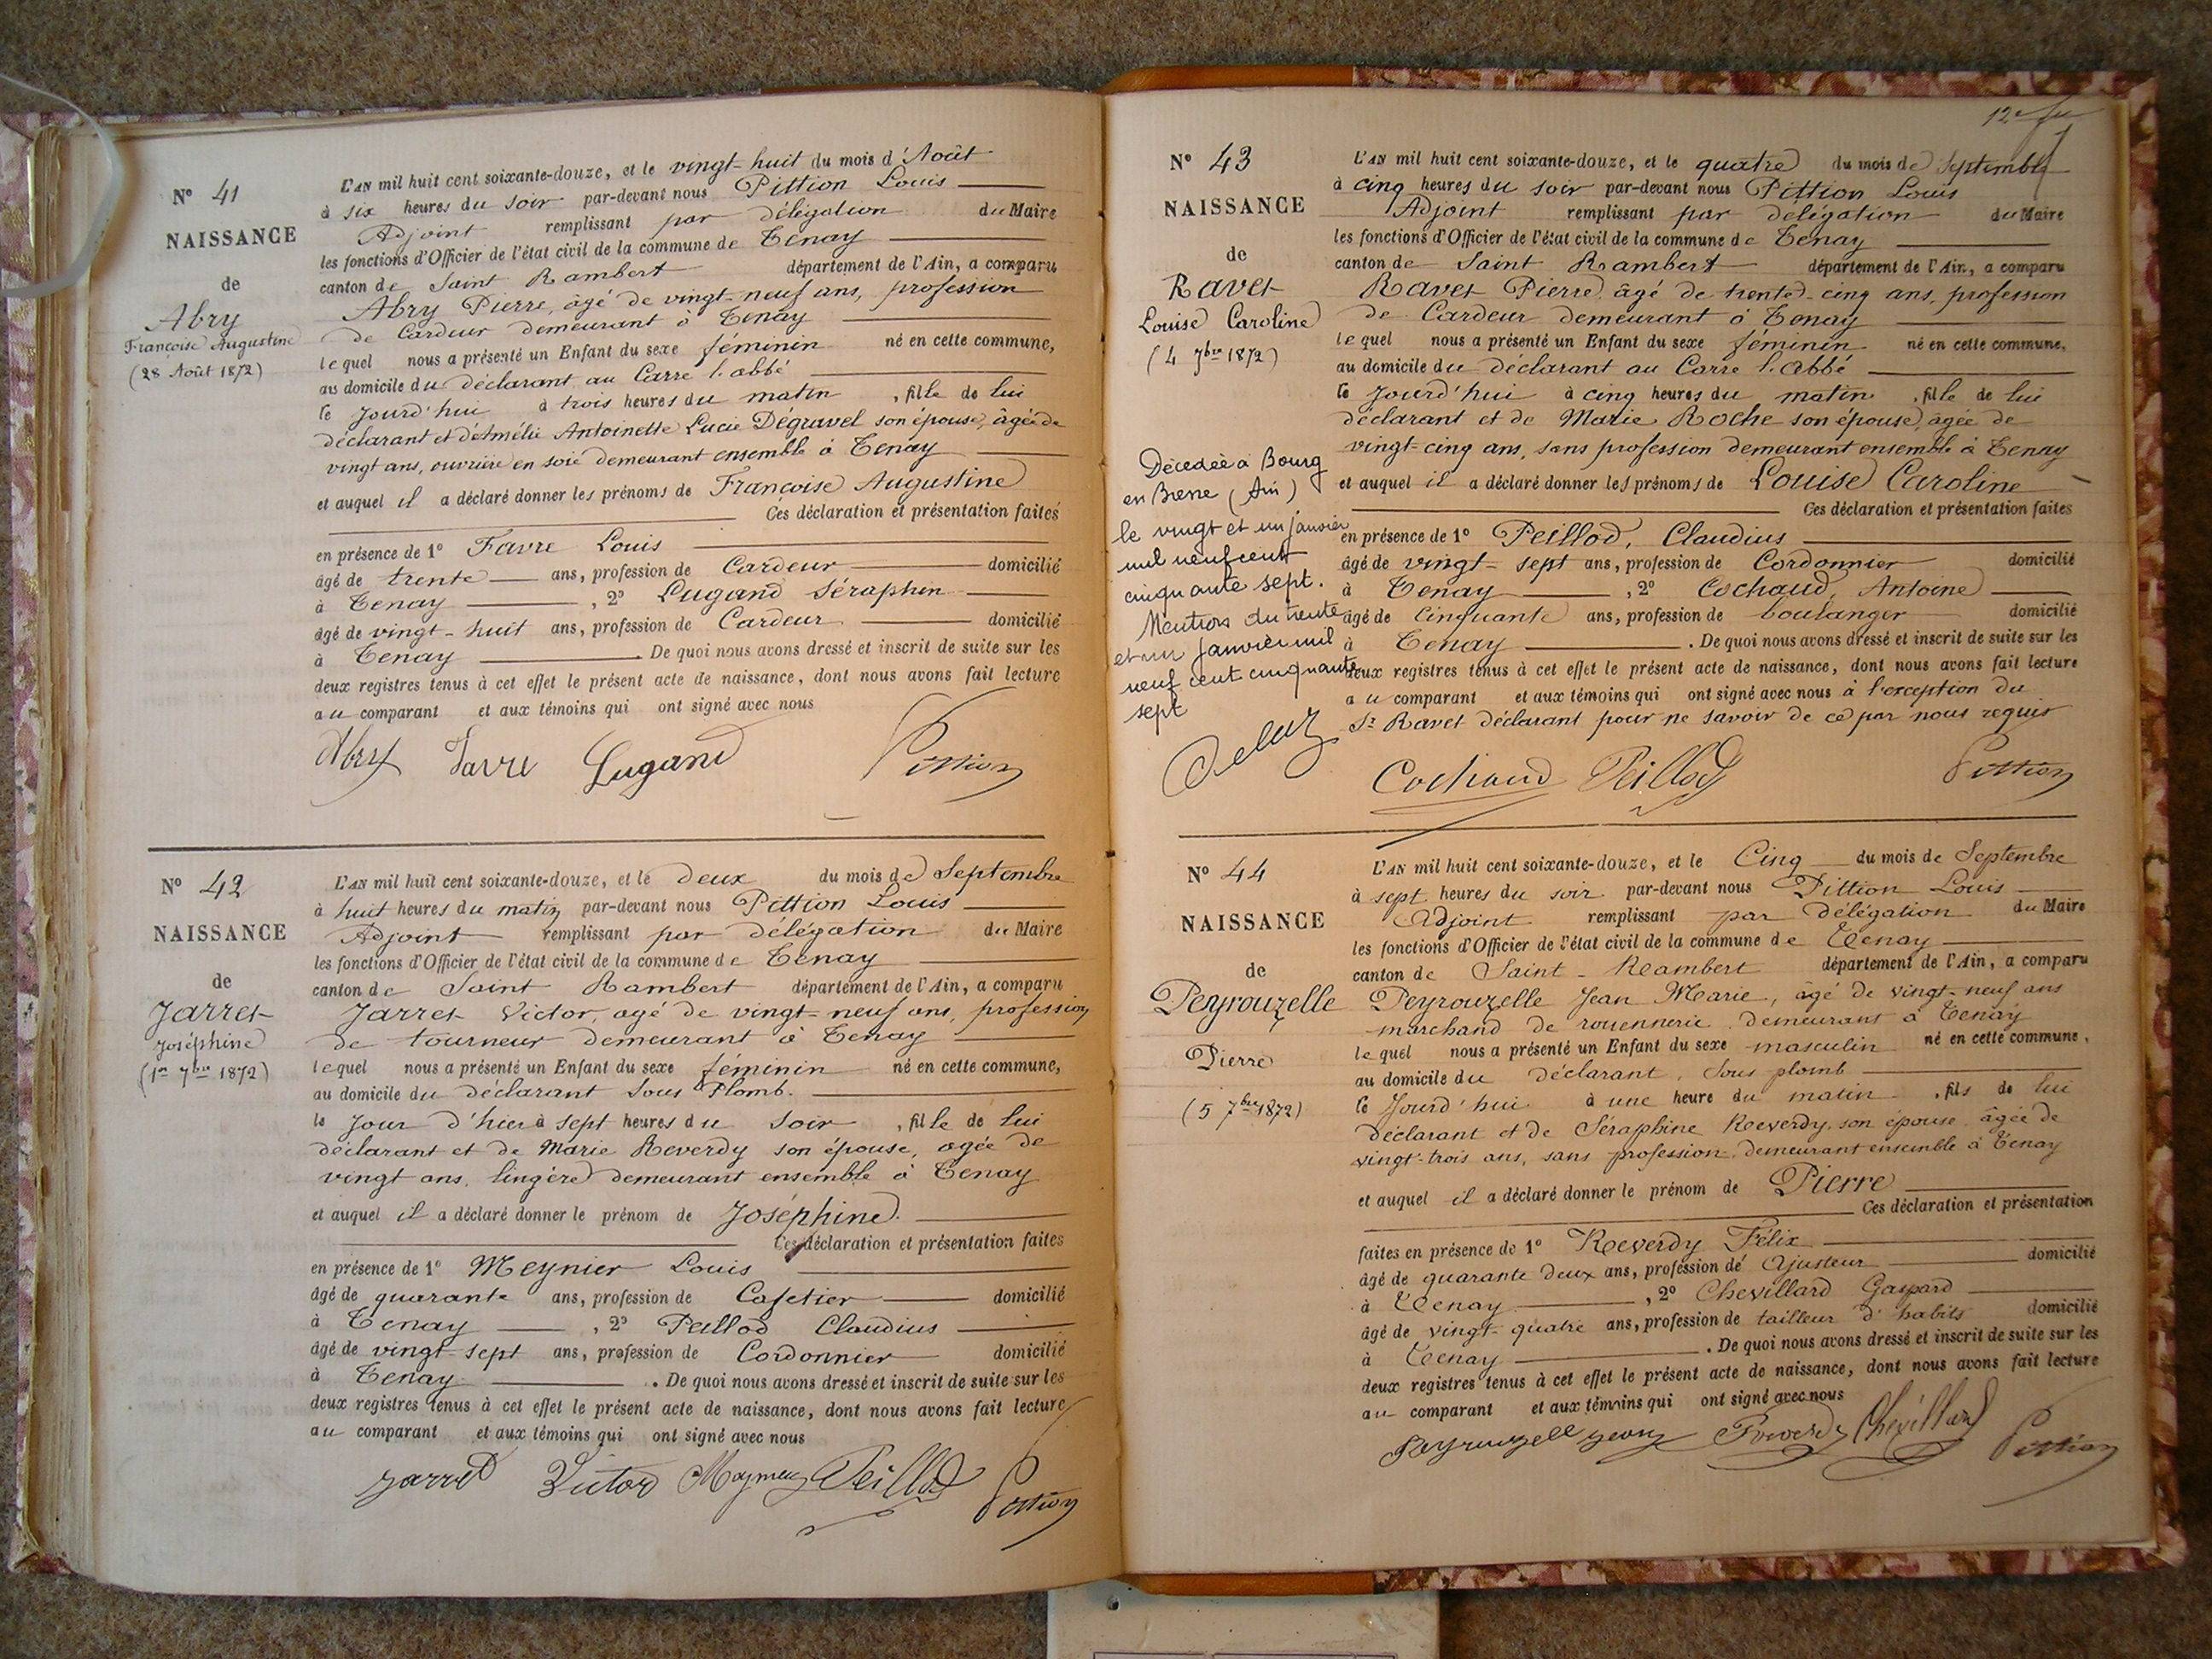 N° 41
NAISSANCE
de
Abry
Françoise Augustine
(28 Août 1872)
L'AN mil huit cent soixante-douze, et le vingt-huit du mois d'Août
à six heures du soir par-devant nous Pittion Louis
Adjoint remplissant par délégation du Maire
les fonctions d'Officier de l'état civil de la commune de Tenay
canton de Saint Rambert département de l'Ain, a comparu
Abry Pierre, âgé de vingt-neuf ans, profession
de Cardeur demeurant à Tenay
lequel nous a présenté un Enfant du sexe féminin né en cette commune,
au domicile du déclarant au Carre l'abbé
le jourd'hui à trois heures du matin, fille de lui
déclarant et d'Amélie Antoinette Lucie Dégravel son épouse, âgée de
vingt ans, ouvrière en soie demeurant ensemble à Tenay
et auquel il a déclaré donner les prénoms de Françoise Augustine
Ces déclaration et présentation faites
en présence de 1° Favre Louis
âgé de trente ans, profession de Cardeur domicilié
à Tenay, 2° Lugand Séraphin
âgé de vingt-huit ans, profession de Cardeur domicilié
à Tenay. De quoi nous avons dressé et inscrit de suite sur les
deux registres tenus à cet effet le présent acte de naissance, dont nous avons fait lecture
au comparant et aux témoins qui ont signé avec nous
Abry Favre Lugand Pittion
N° 42
NAISSANCE
de
Jarret
Joséphine
(1er 7bre 1872)
L'AN mil huit cent soixante-douze, et le deux du mois de Septembre
à huit heures du matin par-devant nous Pittion Louis
Adjoint remplissant par délégation du Maire
les fonctions d'Officier de l'état civil de la commune de Tenay
canton de Saint Rambert département de l'Ain, a comparu
Jarret Victor, agé de vingt-neuf ans, profession
de tourneur demeurant à Tenay
lequel nous a présenté un Enfant du sexe féminin né en cette commune,
au domicile du déclarant Sous Plomb.
le jour d'hier à sept heures du soir, fille de lui
déclarant et de Marie Reverdy son épouse, agée de
vingt ans, lingère demeurant ensemble à Tenay
et auquel il a déclaré donner le prénom de Joséphine.
Ces déclaration et présentation faites
en présence de 1° Meynier Louis
âgé de quarante ans, profession de Cafetier domicilié
à Tenay, 2° Peillod Claudius
âgé de vingt-sept ans, profession de Cordonnier domicilié
à Tenay. De quoi nous avons dressé et inscrit de suite sur les
deux registres tenus à cet effet le présent acte de naissance, dont nous avons fait lecture
au comparant et aux témoins qui ont signé avec nous
Jarret Victor Peillod Pittion
12e
N° 43
NAISSANCE
de
Ravet
Louise Caroline
(4 7bre 1872)
Décédée à Bourg
en Bresse (Ain)
le vingt et un janvier
mil neuf cent
cinquante sept.
Mention du trente
et un janvier mil
neuf cent cinquante
sept
L'AN mil huit cent soixante-douze, et le quatre du mois de Septembre
à cinq heures du soir par-devant nous Pittion Louis
Adjoint remplissant par délégation du Maire
les fonctions d'Officier de l'état civil de la commune de Tenay
canton de Saint Rambert département de l'Ain, a comparu
Ravet Pierre, âgé de trente-cinq ans, profession
de Cardeur demeurant à Tenay
lequel nous a présenté un Enfant du sexe féminin né en cette commune,
au domicile du déclarant au Carre l'Abbé
le jourd'hui à cinq heures du matin, fille de lui
déclarant et de Marie Roche son épouse, âgée de
vingt-cinq ans, sans profession demeurant ensemble à Tenay
et auquel il a déclaré donner les prénoms de Louise Caroline
Ces déclaration et présentation faites
en présence de 1° Peillod, Claudius
âgé de vingt-sept ans, profession de Cordonnier domicilié
à Tenay, 2° Cochaud, Antoine
âgé de cinquante ans, profession de boulanger domicilié
à Tenay. De quoi nous avons dressé et inscrit de suite sur les
deux registres tenus à cet effet le présent acte de naissance, dont nous avons fait lecture
au comparant et aux témoins qui ont signé avec nous à l'exception du
Sr Ravet déclarant pour ne savoir de ce par nous requis
Cochaud Peillod Pittion
N° 44
NAISSANCE
de
Peyrouzelle
Pierre
(5 7bre 1872)
L'AN mil huit cent soixante-douze, et le Cinq du mois de Septembre
à sept heures du soir par-devant nous Pittion Louis
Adjoint remplissant par délégation du Maire
les fonctions d'Officier de l'état civil de la commune de Tenay
canton de Saint-Rambert département de l'Ain, a comparu
Peyrouzelle Jean Marie, âgé de vingt-neuf ans
marchand de rouennerie demeurant à Tenay
lequel nous a présenté un Enfant du sexe masculin né en cette commune,
au domicile du déclarant, Sous plomb
le jourd'hui à une heure du matin, fils de lui
déclarant et de Séraphine Reverdy, son épouse âgée de
vingt-trois ans, sans profession, demeurant ensemble à Tenay
et auquel il a déclaré donner le prénom de Pierre
Ces déclaration et présentation
faites en présence de 1° Reverdy Félix
âgé de quarante deux ans, profession de ajusteur domicilié
à Tenay, 2° Chevillard Gaspard
âgé de vingt-quatre ans, profession de tailleur d'habits domicilié
à Tenay. De quoi nous avons dressé et inscrit de suite sur les
deux registres tenus à cet effet le présent acte de naissance, dont nous avons fait lecture
au comparant et aux témoins qui ont signé avec nous
Chevillard Pittion